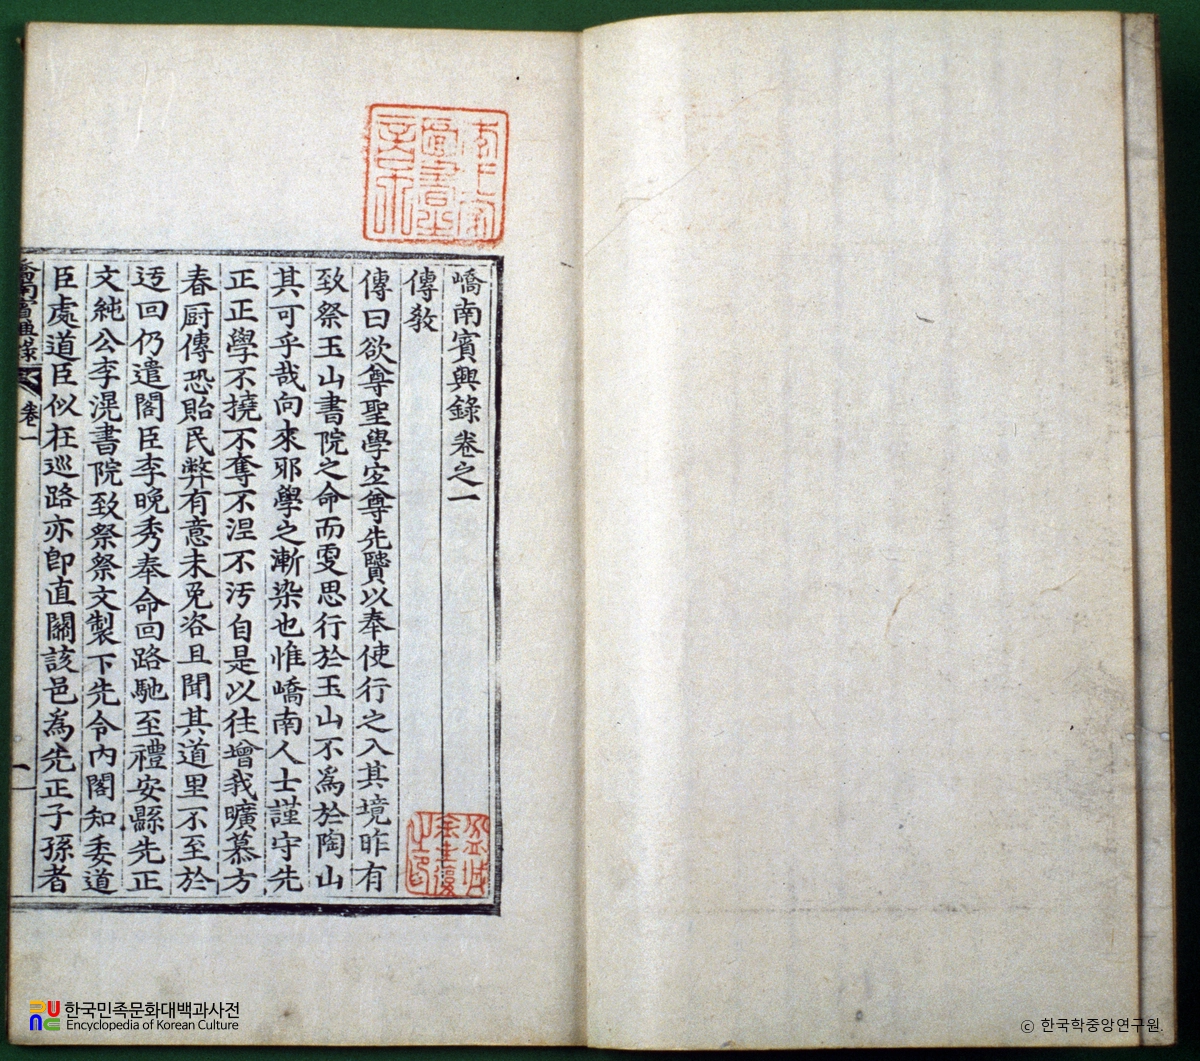 嶠南賓興錄卷之一
傳敎
傳曰欲尊聖學宜尊先賢以奉使行之入其境昨有
致祭玉山書院之命而更思行於玉山不爲於陶山
其可乎哉向來邪學之漸染也惟嶠南人士謹守先
正正學不撓不奪不涅不汚自是以往增我曠慕方
春厨傳恐貽民弊有意未免咨且聞其道里不至於
迂回仍遣閣臣李晩秀奉命回路馳至禮安縣先正
文純公李滉書院致祭祭文製下先令內閣知委道
臣處道臣似在巡路亦卽直關該邑爲先正子孫者
嶠南賓興錄
卷一
一
한국민족문화대백과사전
Encyclopedia of Korean Culture
© 한국학중앙연구원.